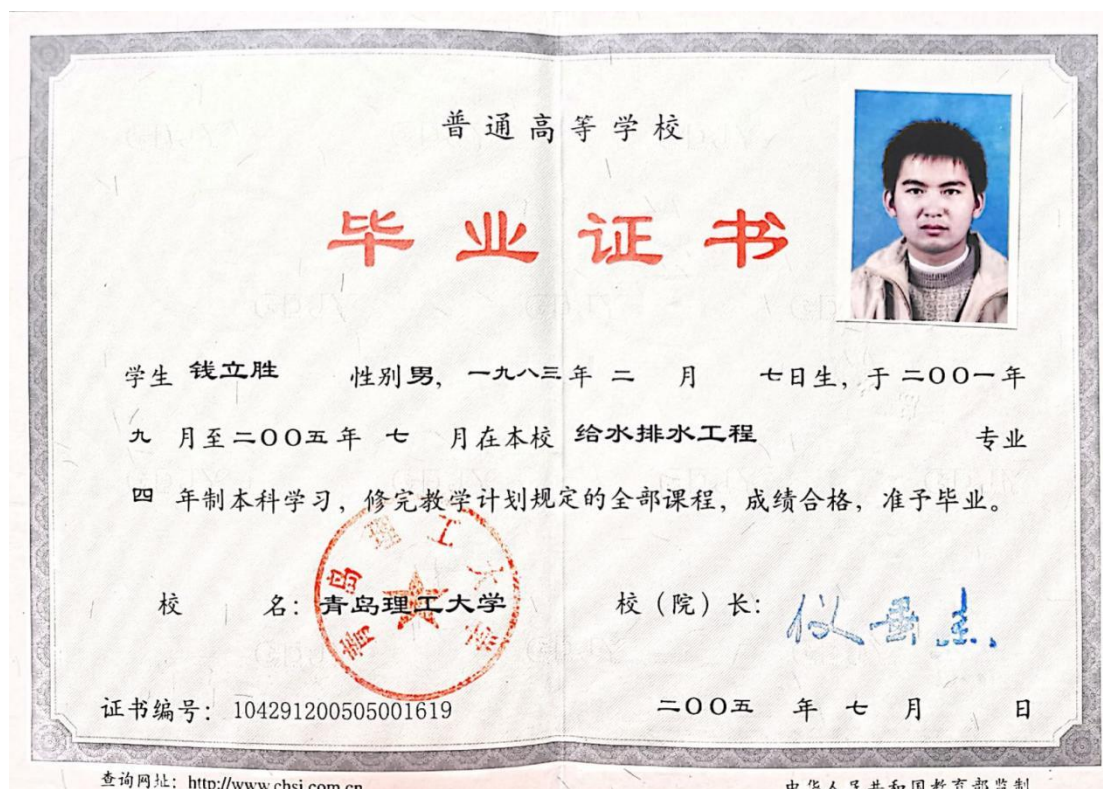 普通高等学校
毕业证书
学生 钱立胜 性别男, 一九八三年 二 月 七日生, 于 二00一年
九 月至二00五年 七 月在本校 给水排水工程 专业
四 年制本科学习, 修完教学计划规定的全部课程, 成绩合格, 准予毕业。
青岛理工大学
校 名: 青岛理工大学 校（院）长: 仪垂杰
证书编号: 104291200505001619 二00五 年 七 月 日
查询网址: http://www.chsi.com.cn 中华人民共和国教育部监制